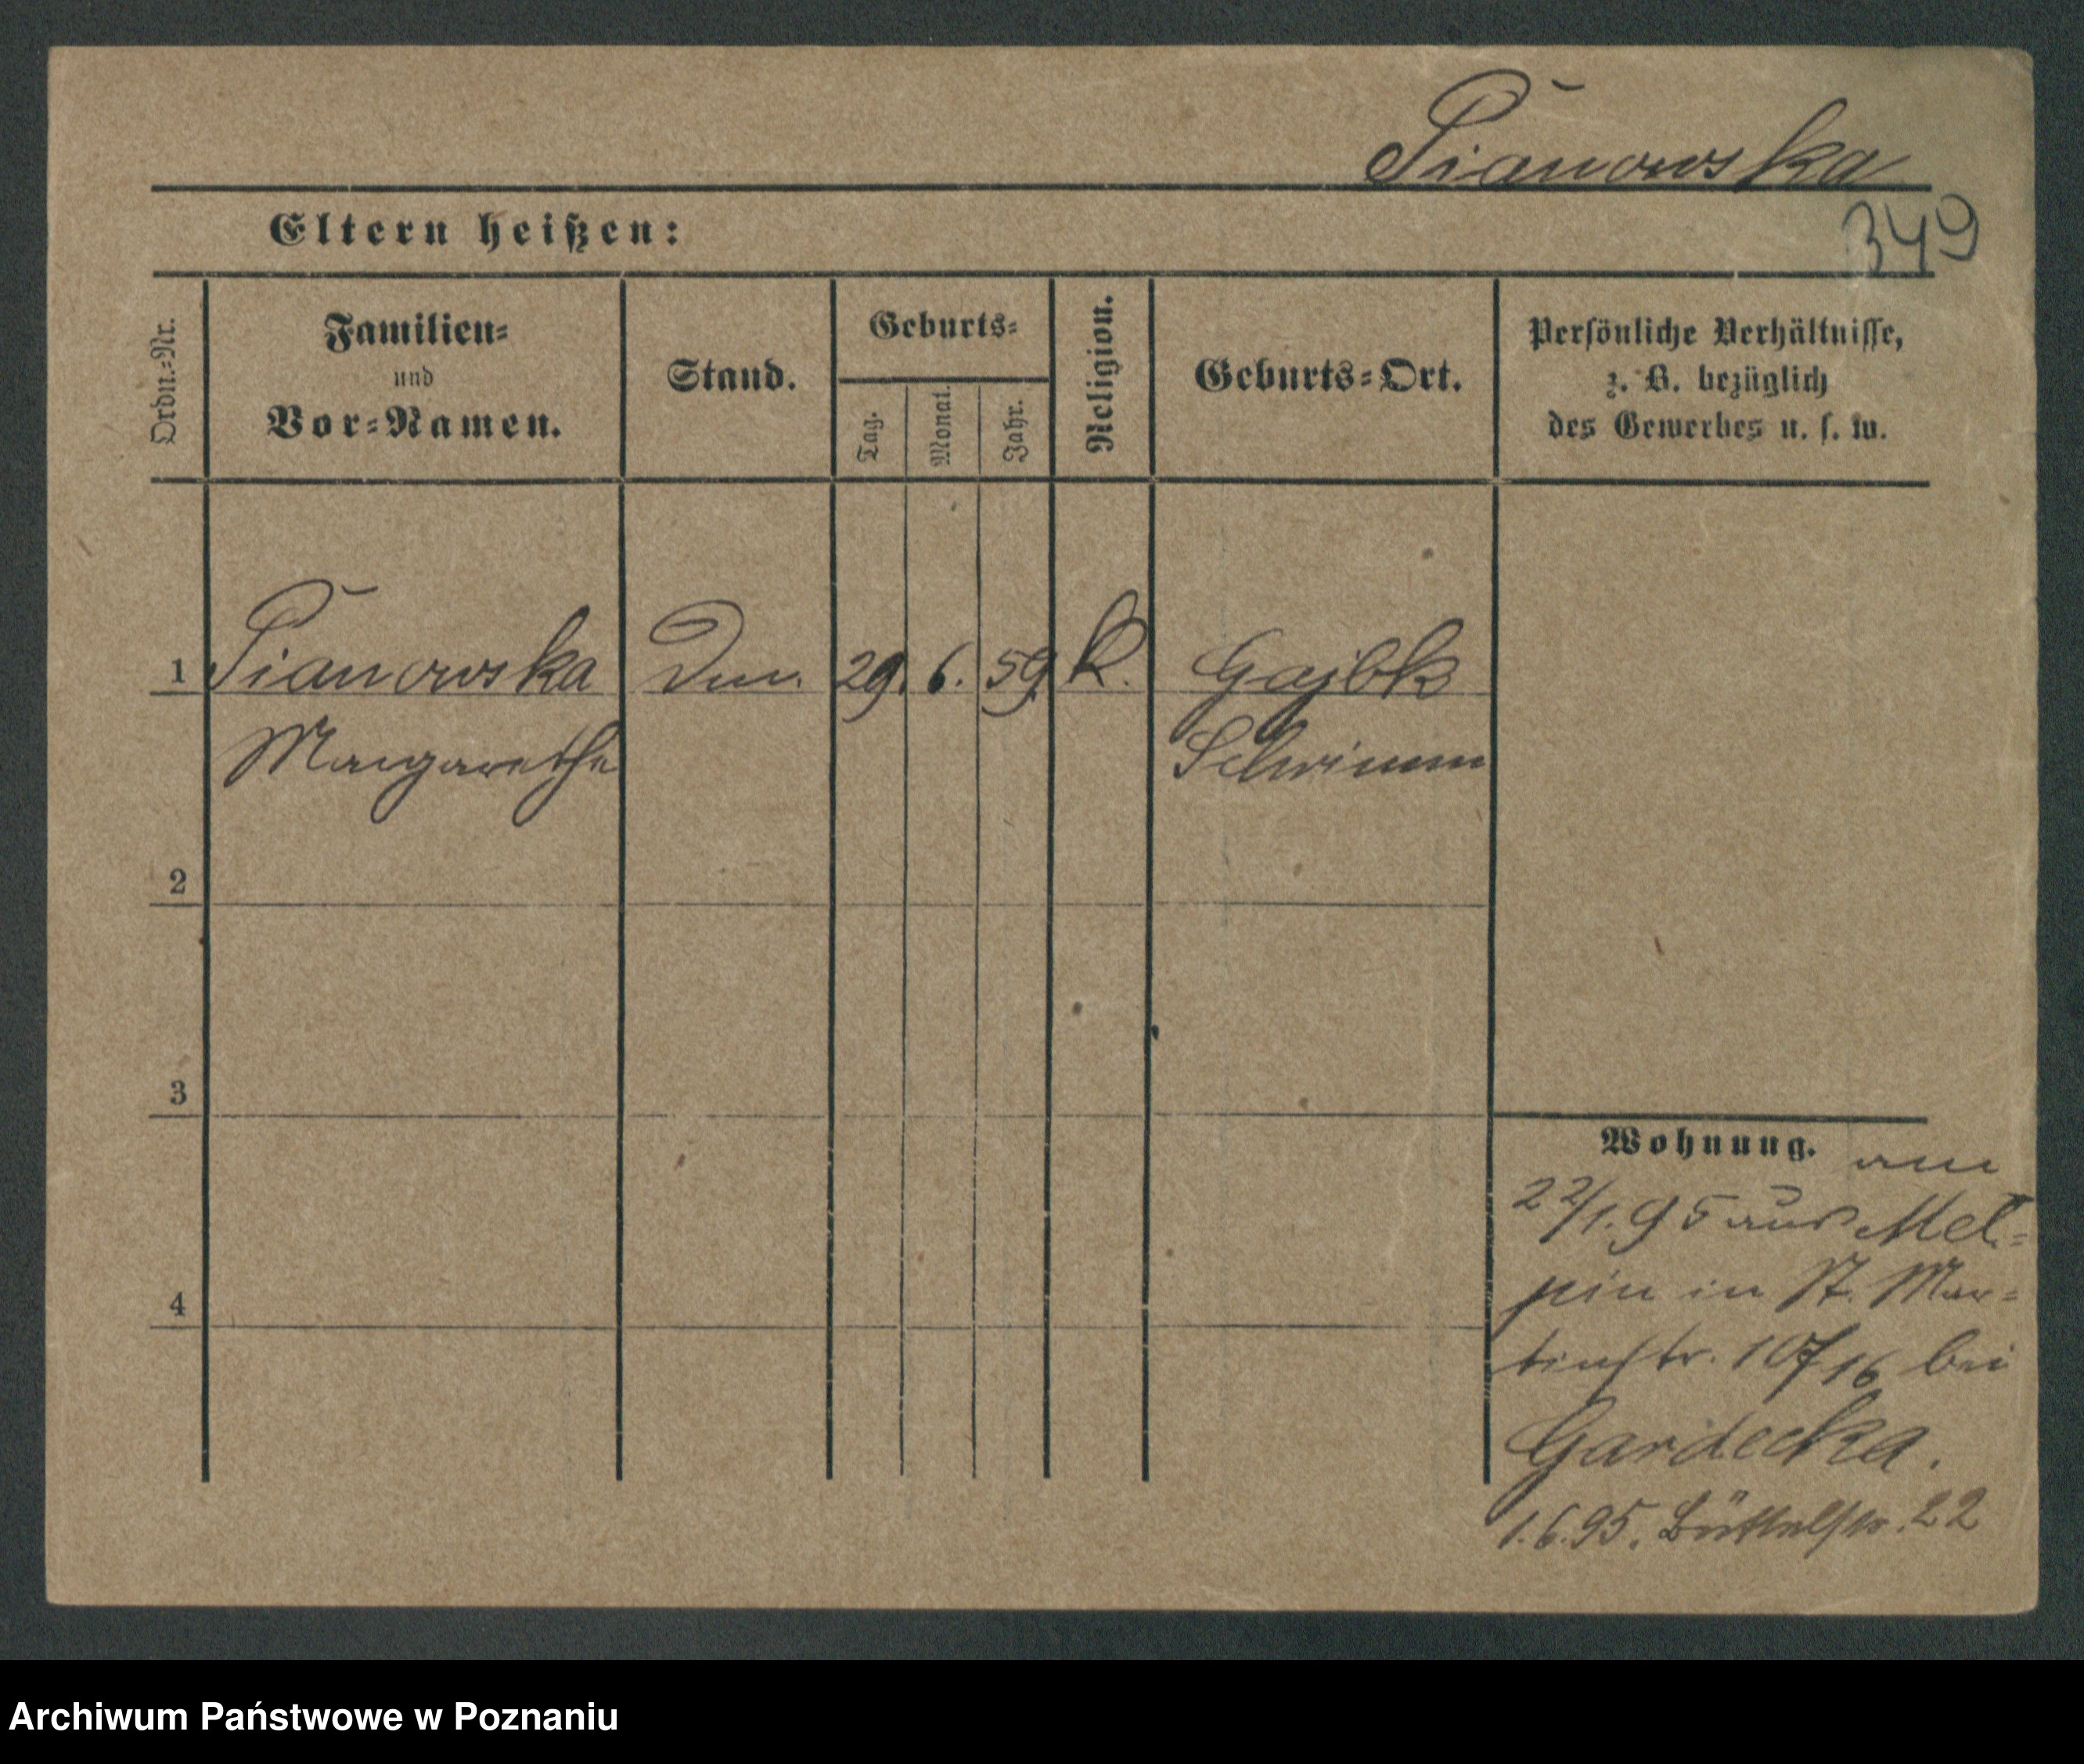 Pianowska
Eltern heißen:
349
Ordn.=Nr.
Familien=
und
Vor=Namen.
Stand.
Geburts=
Tag.
Monat.
Jahr.
Religion.
Geburts=Ort.
Persönliche Verhältnisse,
z. B. bezüglich
des Gewerbes u. s. w.
1 Pianowska 29. 6. 59. k.
Margarethe Schrimm
2
3
4
Wohnung. am
22/1.95 aus Mel=
pin in St. Mar=
tinstr. 16 bei
Gardecka.
1.6.95. Büttelstr. 22
Archiwum Państwowe w Poznaniu